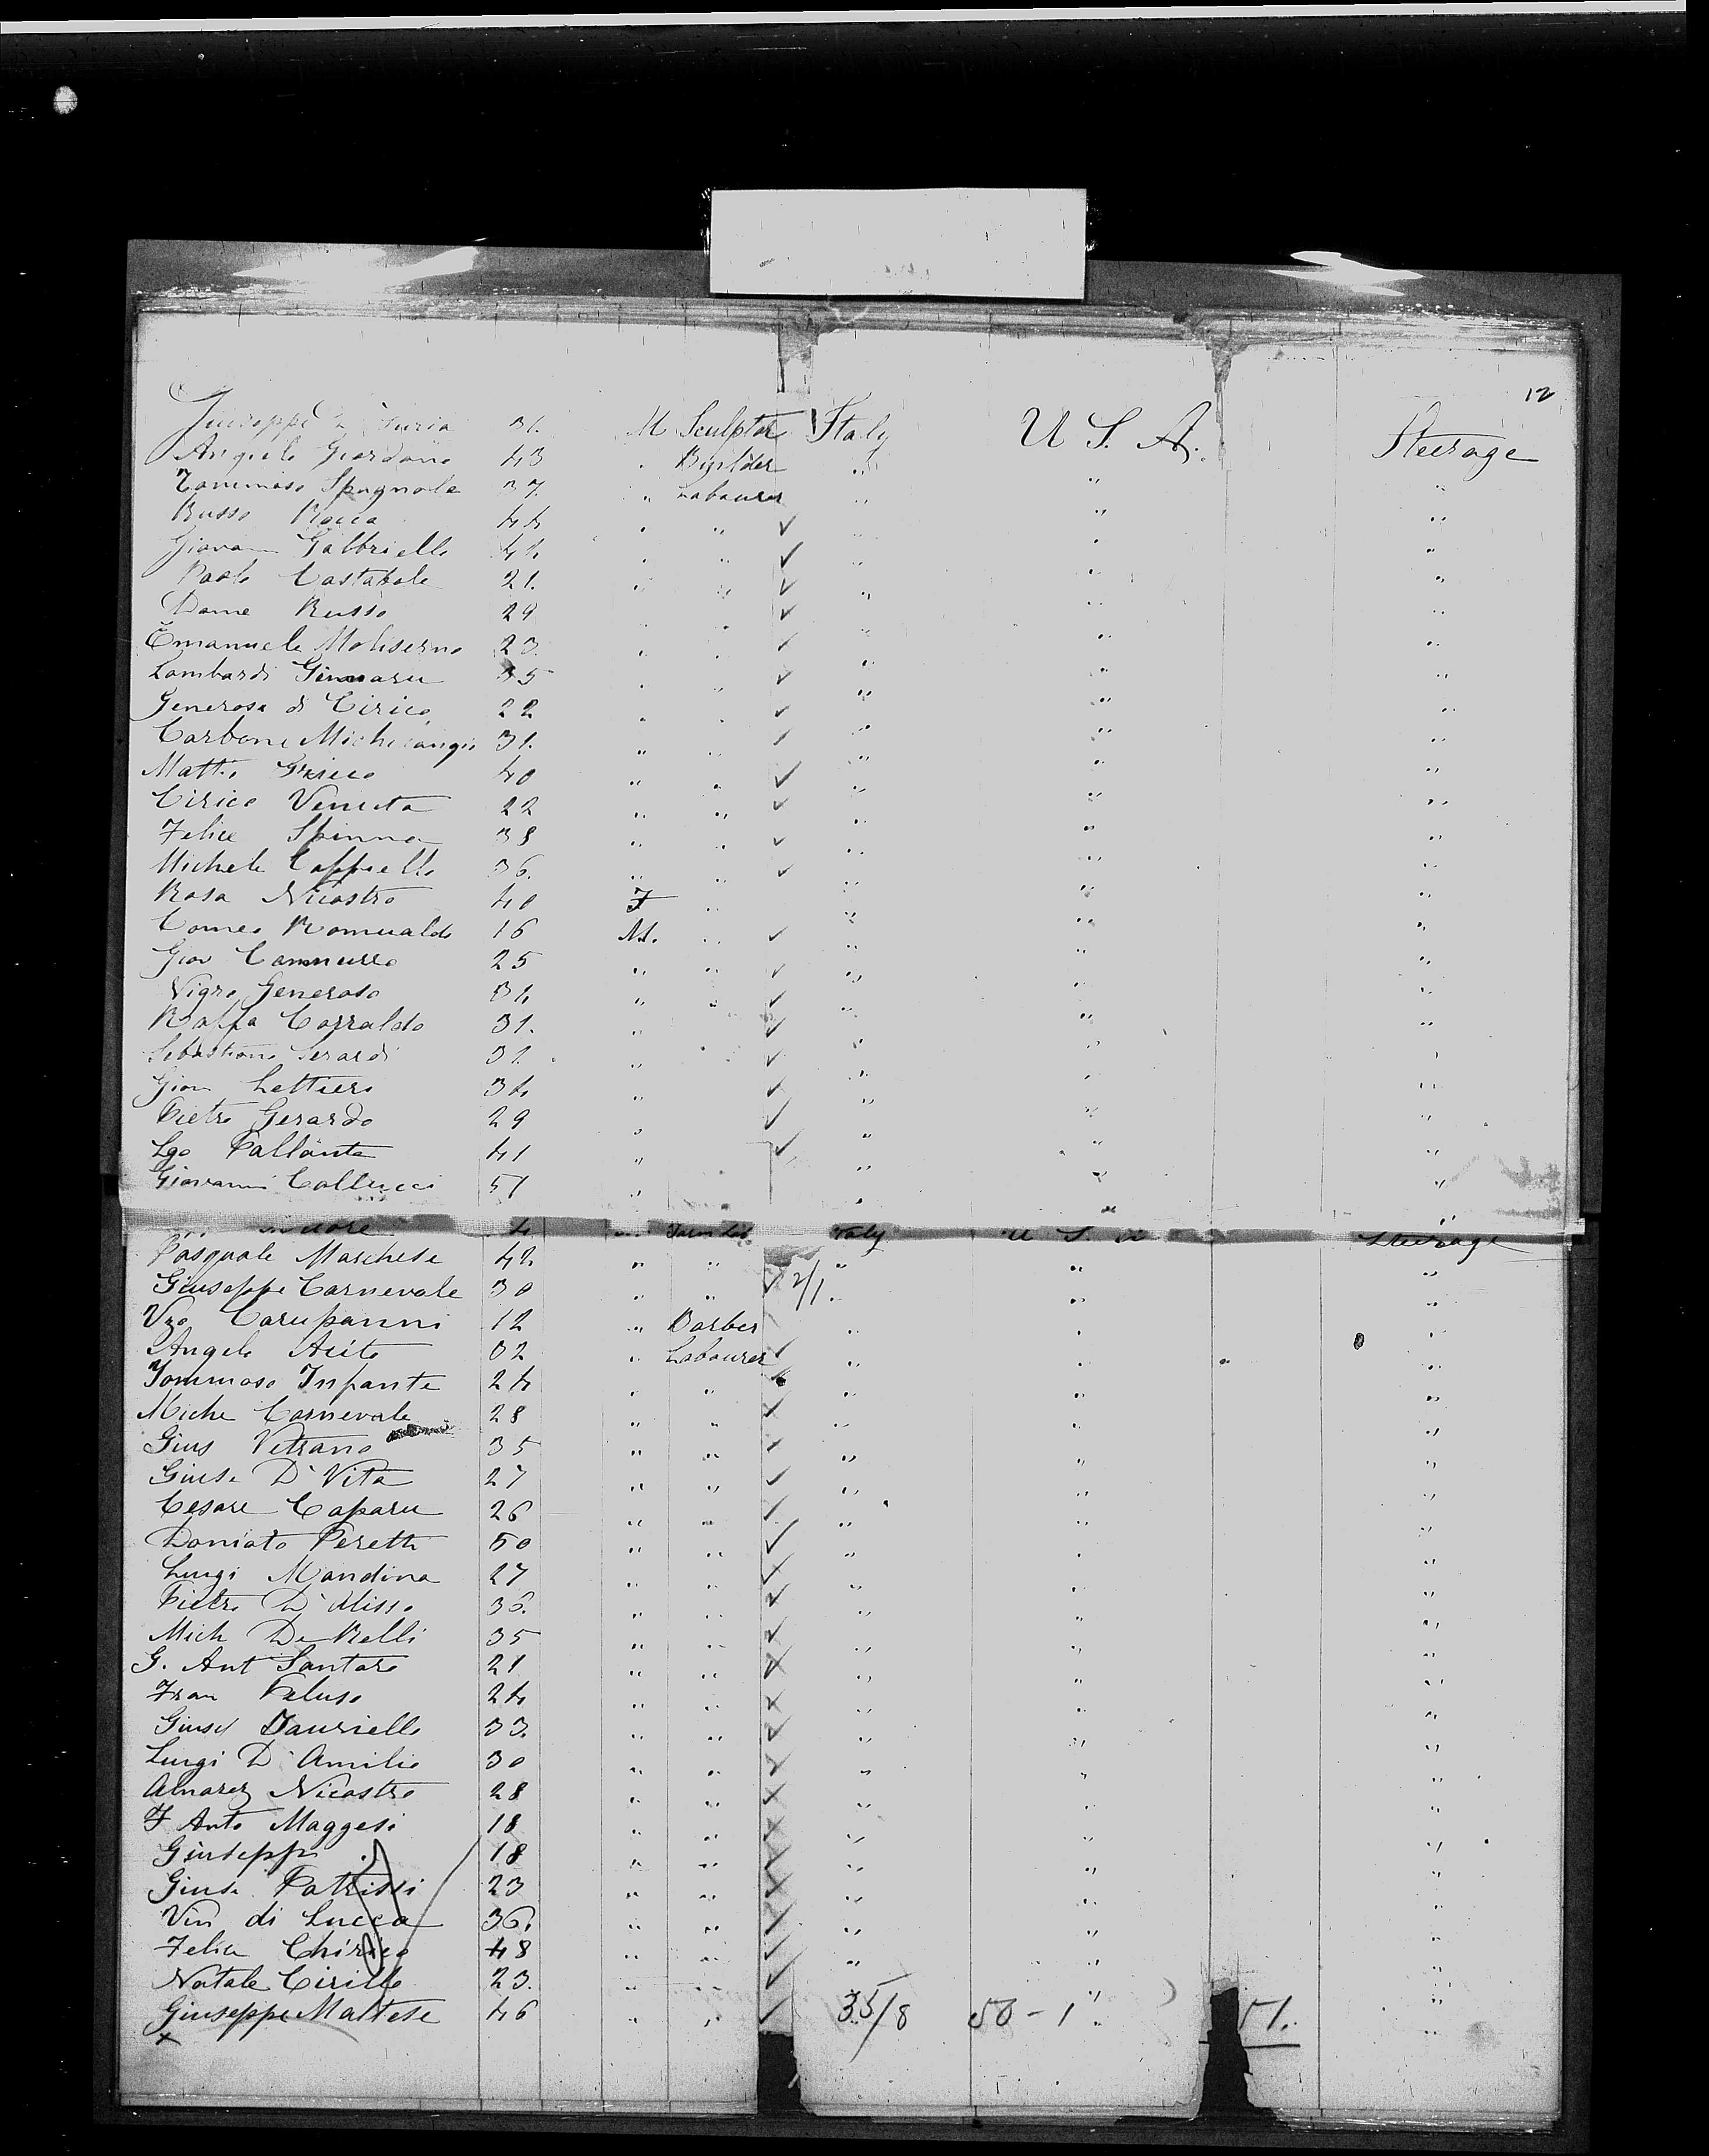 12
Giuseppe D' Furia 31. M Sculptor Italy U S. A. Steerage
Angelo Giordano 43 " Builder " " "
Tommaso Spagnola 37. " Labourer " " "
Russo Rocca 44 " " " " "
Giovan Galbriello 42 " " " " "
Paolo Castabole 21. " " " " "
Dome Russo 29 " " " " "
Emanuele Moliserno 23. " " " " "
Lombardi 35 " " " " "
Generosa di Cirico 22 " " " " "
Carbone Michelangio 31. " " " " "
Matteo Grieco 40 " " " " "
Cirico Venuta 22 " " " " "
Felice Spinna 38 " " " " "
Michele Cappiello 36. " " " " "
Rosa Nicastro 40 F " " " "
Comeo Romualdo 16 M. " " " "
Giov Cammuseo 25 " " " " "
Vigro Generoso 34 " " " " "
Raffa Corraldo 31. " " " " "
Sebastiano Gerardi 31. " " " " "
Giov Lettiero 34 " " " " "
Pietro Gerardo 29 " " " "
Lgo Pallante 41 " " " "
Giovanni Collucci 51 " " " "
4 " Italy U S. A Steerage
Pasquale Marchese 42 " " " " "
Giuseppe Carnevale 30 " " 2/1 " " "
Vzo Carupanni 12 " Barber " " "
Angelo Aieto 32 " Labourer " " "
Tommaso Infante 24 " " " " "
Miche Carnevale 28 " " " " "
Gius Vetrano 35 " " " " "
Giuse D' Vita 27 " " " " "
Cesare Caparu 26 " " " " "
Doniato Peretti 50 " " " " "
Luigi Mandina 27 " " " " "
Pietro D' Alisso 36. " " " " "
Mich De Relli 35 " " " " "
G. Ant Santoro 21 " " " " "
Fran Peluso 24 " " " " "
Gius Dauriello 33. " " " " "
Luigi D' Amilio 30 " " " " "
Alnarez Nicastro 28 " " " " "
F Anto Maggesi 18 " " " " "
Giuseppe " 18 " " " " "
Giuse Patrissi 23 " " " " "
Vin di Lucca 36. " " " " "
Felice Chirico 48 " " " " "
Natale Cirillo 23. " " " "
Giuseppe Maltese 46 " " 35/8 50 - 1 " 51. "
x